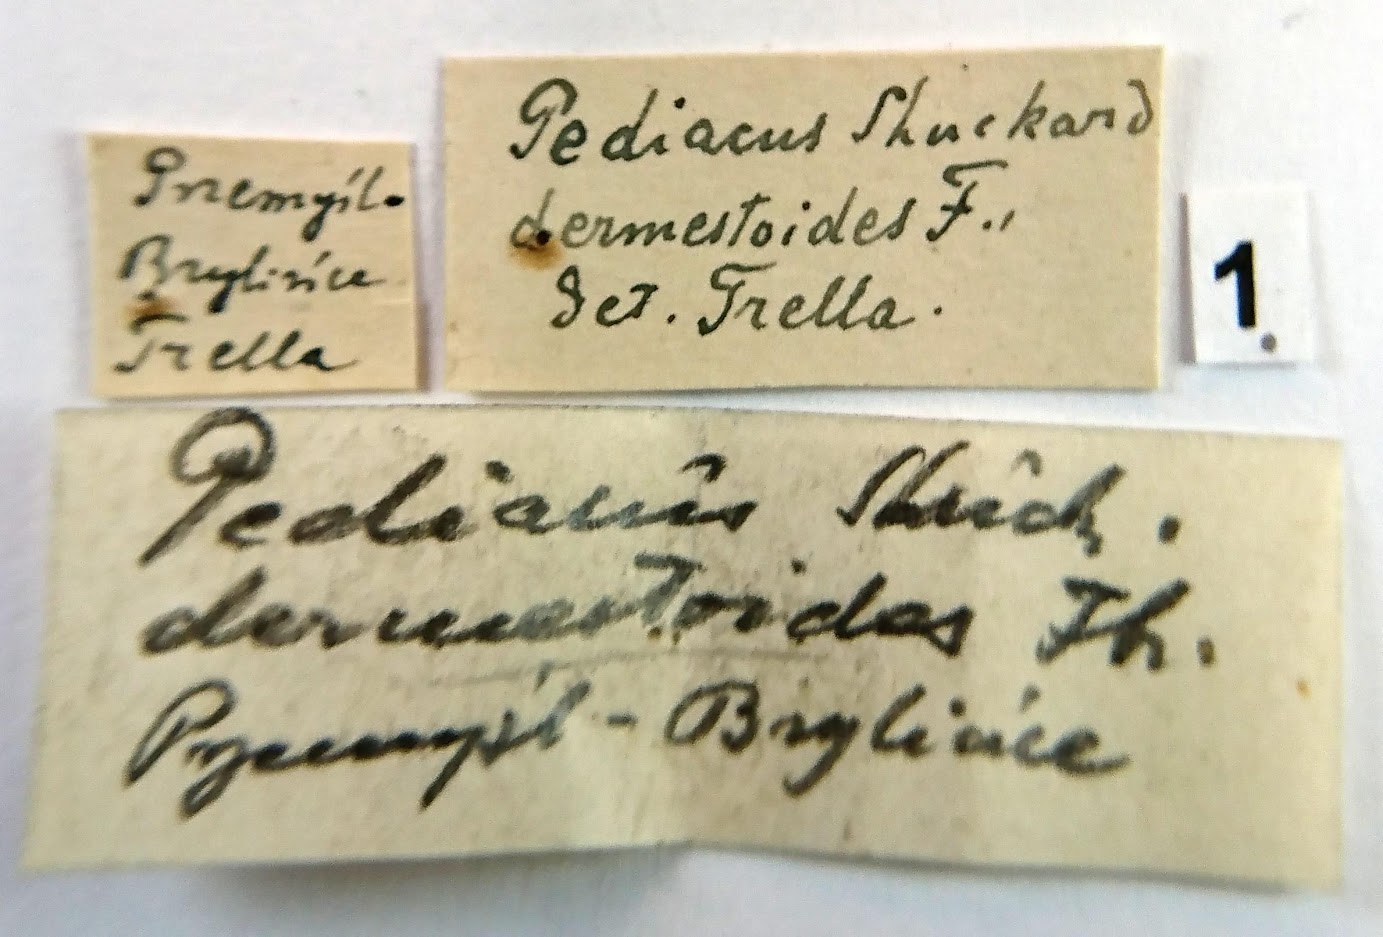 Przemyśl-
Brylińce
Trella
Pediacus Shuckard
dermestoides F.,
Det. Trella.
1.
Pediacus Shuck.
dermestoides Fb.
Przemyśl - Brylińce